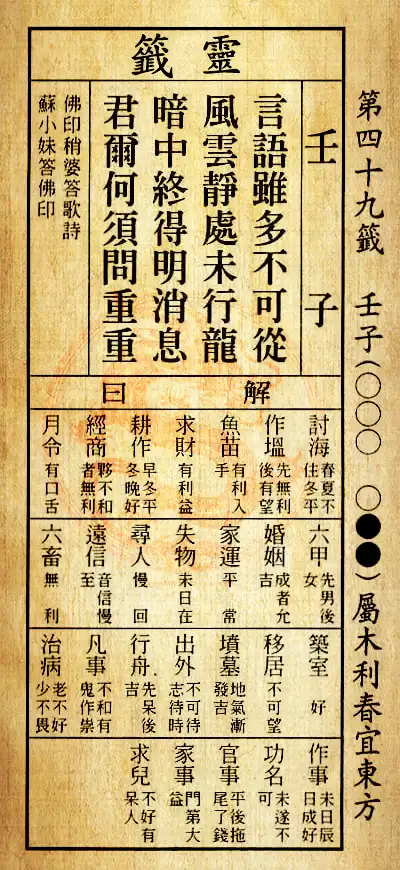 第四十九籤 壬子(○○○ ○●●)屬木利春宜東方
靈籤
壬子
言語雖多不可從
風雲靜處未行龍
暗中終得明消息
君爾何須問重重
佛印稍婆答歌詩
蘇小妹答佛印
解曰
討海 春夏不住冬平
作塭 先無利後有望
魚苗 有利入手
求財 有利益
耕作 早冬平冬晚好
經商 夥不和者無利
月令 有口舌
六甲 先男後女
婚姻 成者允吉
家運 平常
失物 未日在
尋人 慢回
遠信 音信慢至
六畜 無利
築室 好
移居 不可望
墳墓 地氣漸發吉
出外 不可待志待時
行舟 先呆後吉
凡事 不和有鬼作祟
治病 老不好少不畏
作事 未日辰日成好
功名 未遂不可
官事 平後拖尾了錢
家事 門第大益
求兒 不好有呆人